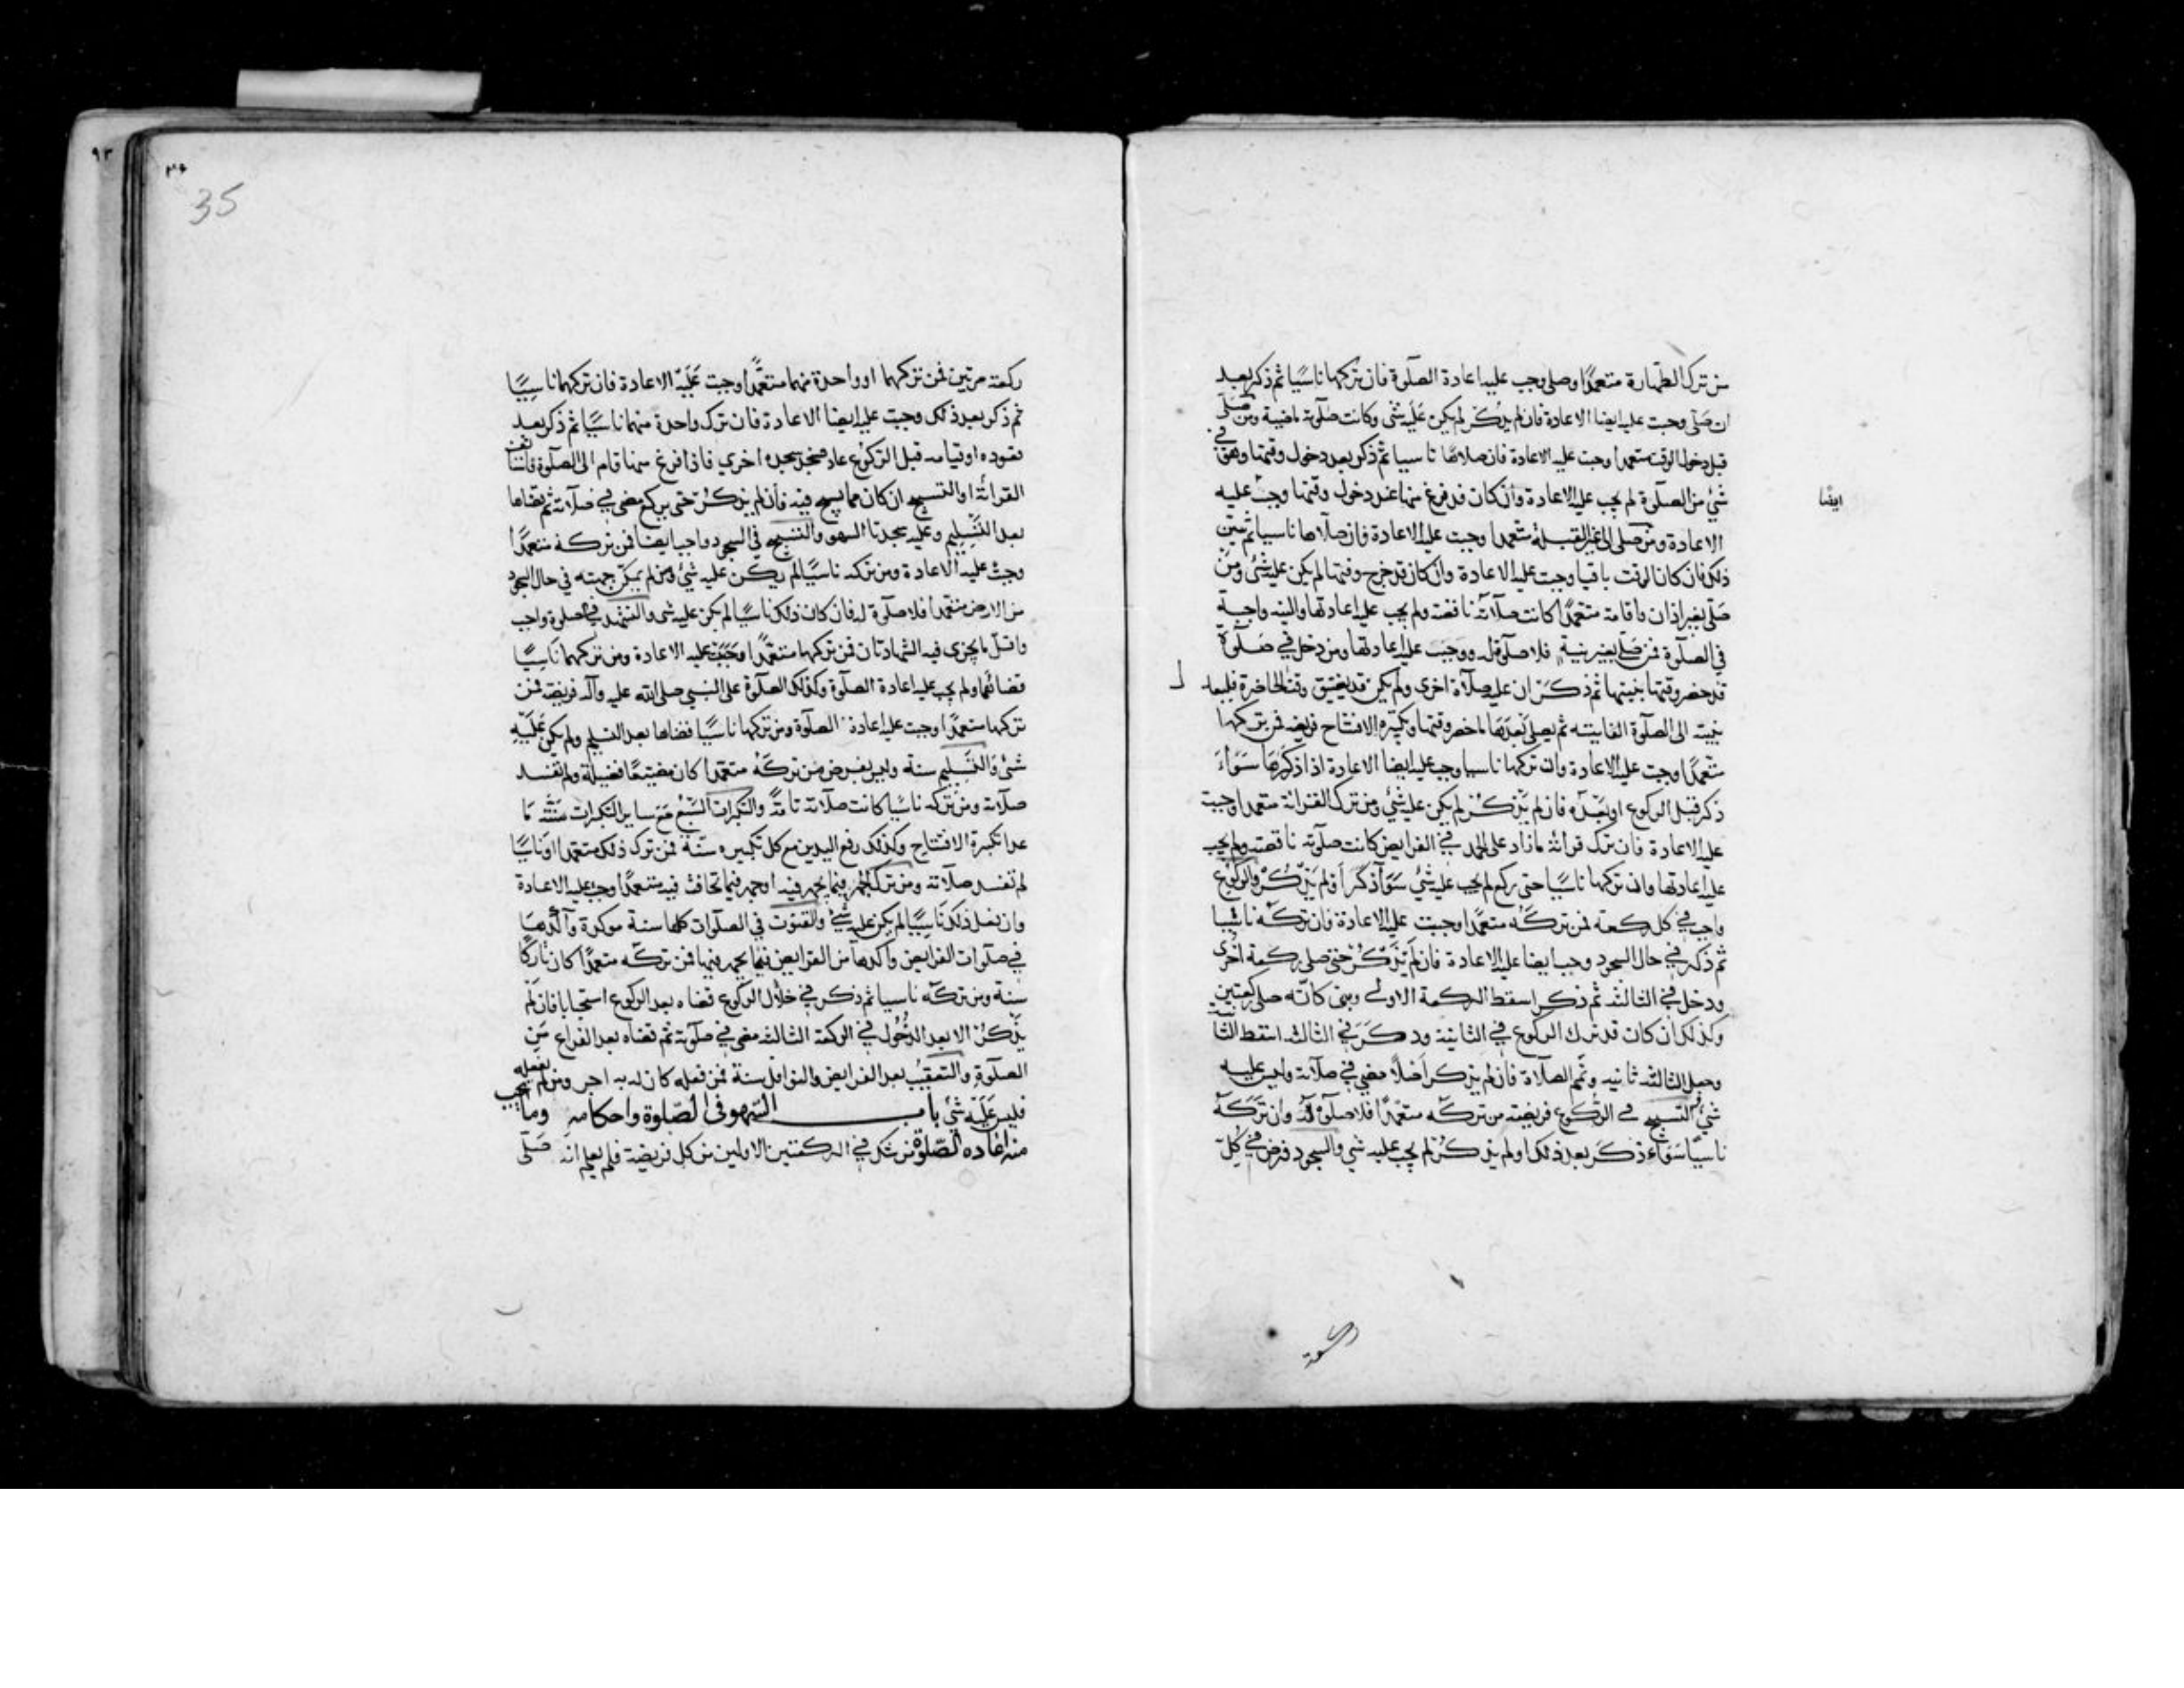 من ترك الطهارة متعمدًا وصلى وجب عليه اعادة الصلوة فان تركها ناسيًا ثم ذكر بعد
ان صلى وجبت عليه ايضا الاعادة فان لم يذكر لم يكن عليه شى وكانت صلوته ماضية ومن صلى
قبل دخول الوقت متعمدا وجبت عليه الاعادة فان صلاها ناسيا ثم ذكر بعد دخول وقتها وهو في
شئ من الصلوة لم يجب عليه الاعادة وان كان قد فرغ منها عند دخول وقتها وجبت عليه
ايضا
الاعادة ومن صلى الى غير القبلة متعمدا وجبت عليه الاعادة فان صلاها ناسيا ثم تبين
ذلك فان كان الوقت باقيا وجبت عليه الاعادة وان كان قد خرج وقتها لم يكن عليه شئ ومن
صلى بغير اذان واقامة متعمدًا كانت صلاته ناقصة ولم يجب عليه اعادتها والنية واجبة
في الصلوة فمن صلى بغير نية فلا صلوة له ووجبت عليه اعادتها ومن دخل في صلوة
قد حضر وقتها بنيتها ثم ذكر ان عليه صلاة اخرى ولم يكن قد يضيق وقت الحاضرة فليعد
بنيته الى الصلوة الفايتة ثم يصلى بعدها ما حضر وقتها وتكبيرة الافتتاح فريضة فمن تركها
متعمدًا وجبت عليه الاعادة وان تركها ناسيا وجب عليه ايضا الاعادة اذا ذكرها سواء
ذكر قبل الركوع او بعده فان لم يذكر لم يكن عليه شئ ومن ترك القرائة متعمدا وجبت
عليه الاعادة فان ترك قرائة ما زاد على الحمد في الفرايض كانت صلوته ناقصة ولم يجب
عليه اعادتها وان تركها ناسيًا حتى ركع لم يجب عليه شئ سوآ ذكر او لم يذكر والركوع
واجب في كل ركعة فمن تركه متعمدًا وجبت عليه الاعادة فان تركه ناسيا
ثم ذكر في حال السجود وجب ايضا عليه الاعادة فان لم يذكر حتى صلى ركعة اخرى
ودخل في الثالثة ثم ذكر اسقط الركعة الاولى وبنى كانه صلى ركعتين
وكذلك ان كان قد ترك الركوع في الثانية وذكر في الثالثة اسقط الثانية
وجعل الثالثة ثانية وتمم الصلاة فان لم يذكر اصلاً مضى في صلاته وليس عليه
شئ والتسبيح في الركوع فريضة من تركه متعمدًا فلا صلوة له وان تركه
ناسيًا سواء ذكر بعد ذلك او لم يذكر لم يجب عليه شى والسجود فرض في كل
ركعة مرتين فمن تركهما او واحدة منهما متعمدًا وجبت عليه الاعادة فان تركهما ناسيًا
ثم ذكر بعد ذلك وجبت عليه ايضا الاعادة فان ترك واحدة منهما ناسيًا ثم ذكر بعد
قعوده او قيامه قبل الركوع عاد فسجد سجدة اخرى فاذا فرغ منها قام الى الصلوة فاستأنف
القرائة او التسبيح ان كان مما يسبح فيه فان لم يذكر حتى يركع مضى في صلاته ثم قضاها
بعد التسليم وعليه سجدتا السهو والتسبيح في السجود واجب ايضا فمن تركه متعمدًا
وجبت عليه الاعادة ومن تركه ناسيًا لم يكن عليه شئ ومن لم يمكن جبهته في حال السجود
من الارض متعمدا فلا صلوة له فان كان ذلك ناسيًا لم يكن عليه شى والتشهد في الصلوة واجب
واقل ما يجزى فيه الشهادتان فمن تركهما متعمدًا وجبت عليه الاعادة ومن تركهما ناسيًا
قضاهما ولم يجب عليه اعادة الصلوة وكذلك الصلوة على النبي صلى الله عليه وآله فريضة فمن
تركها متعمدًا وجبت عليه اعادة الصلوة ومن تركها ناسيًا قضاها بعد التسليم ولم يكن عليه
شئ والتسليم سنة وليس بفرض من تركه متعمدا كان مضيعًا فضيلة ولم تفسد
صلاته ومن تركه ناسيًا كانت صلاته تامة والتكبرات السبع مع ساير التكبرات سنة ما
عدا تكبيرة الافتتاح وكذلك رفع اليدين مع كل تكبيره سنة فمن ترك ذلك متعمدا او ناسيًا
لم تفسد صلاته ومن ترك الجهر فيما يجهر فيه او جهر فيما تخافت فيه متعمدًا وجب عليه الاعادة
وان فعل ذلك ناسيًا لم يكن عليه شئ والقنوت في الصلوات كلها سنة موكدة وآكدها
في صلوات الفرايض وآكدها من الفرايض فيما يجهر فيها فمن تركه متعمدًا كان تاركًا
سنة ومن تركه ناسيا ثم ذكر في خلال الركوع قضاه بعد الركوع استحبابا فان لم
يذكر الا بعد الدخول في الركعة الثالثة مضى في صلوته ثم قضاه بعد الفراغ من
الصلوة والتعقيب بعد الفرايض والنوافل سنة فمن فعله كان له به اجر ومن لم يفعله
فليس عليه شئ باب السهو في الصلوة واحكامه وما يجب
منه اعاده الصلوة من شك في الركعتين الاولين من كل فريضة فلم يعلم انه صلى
35